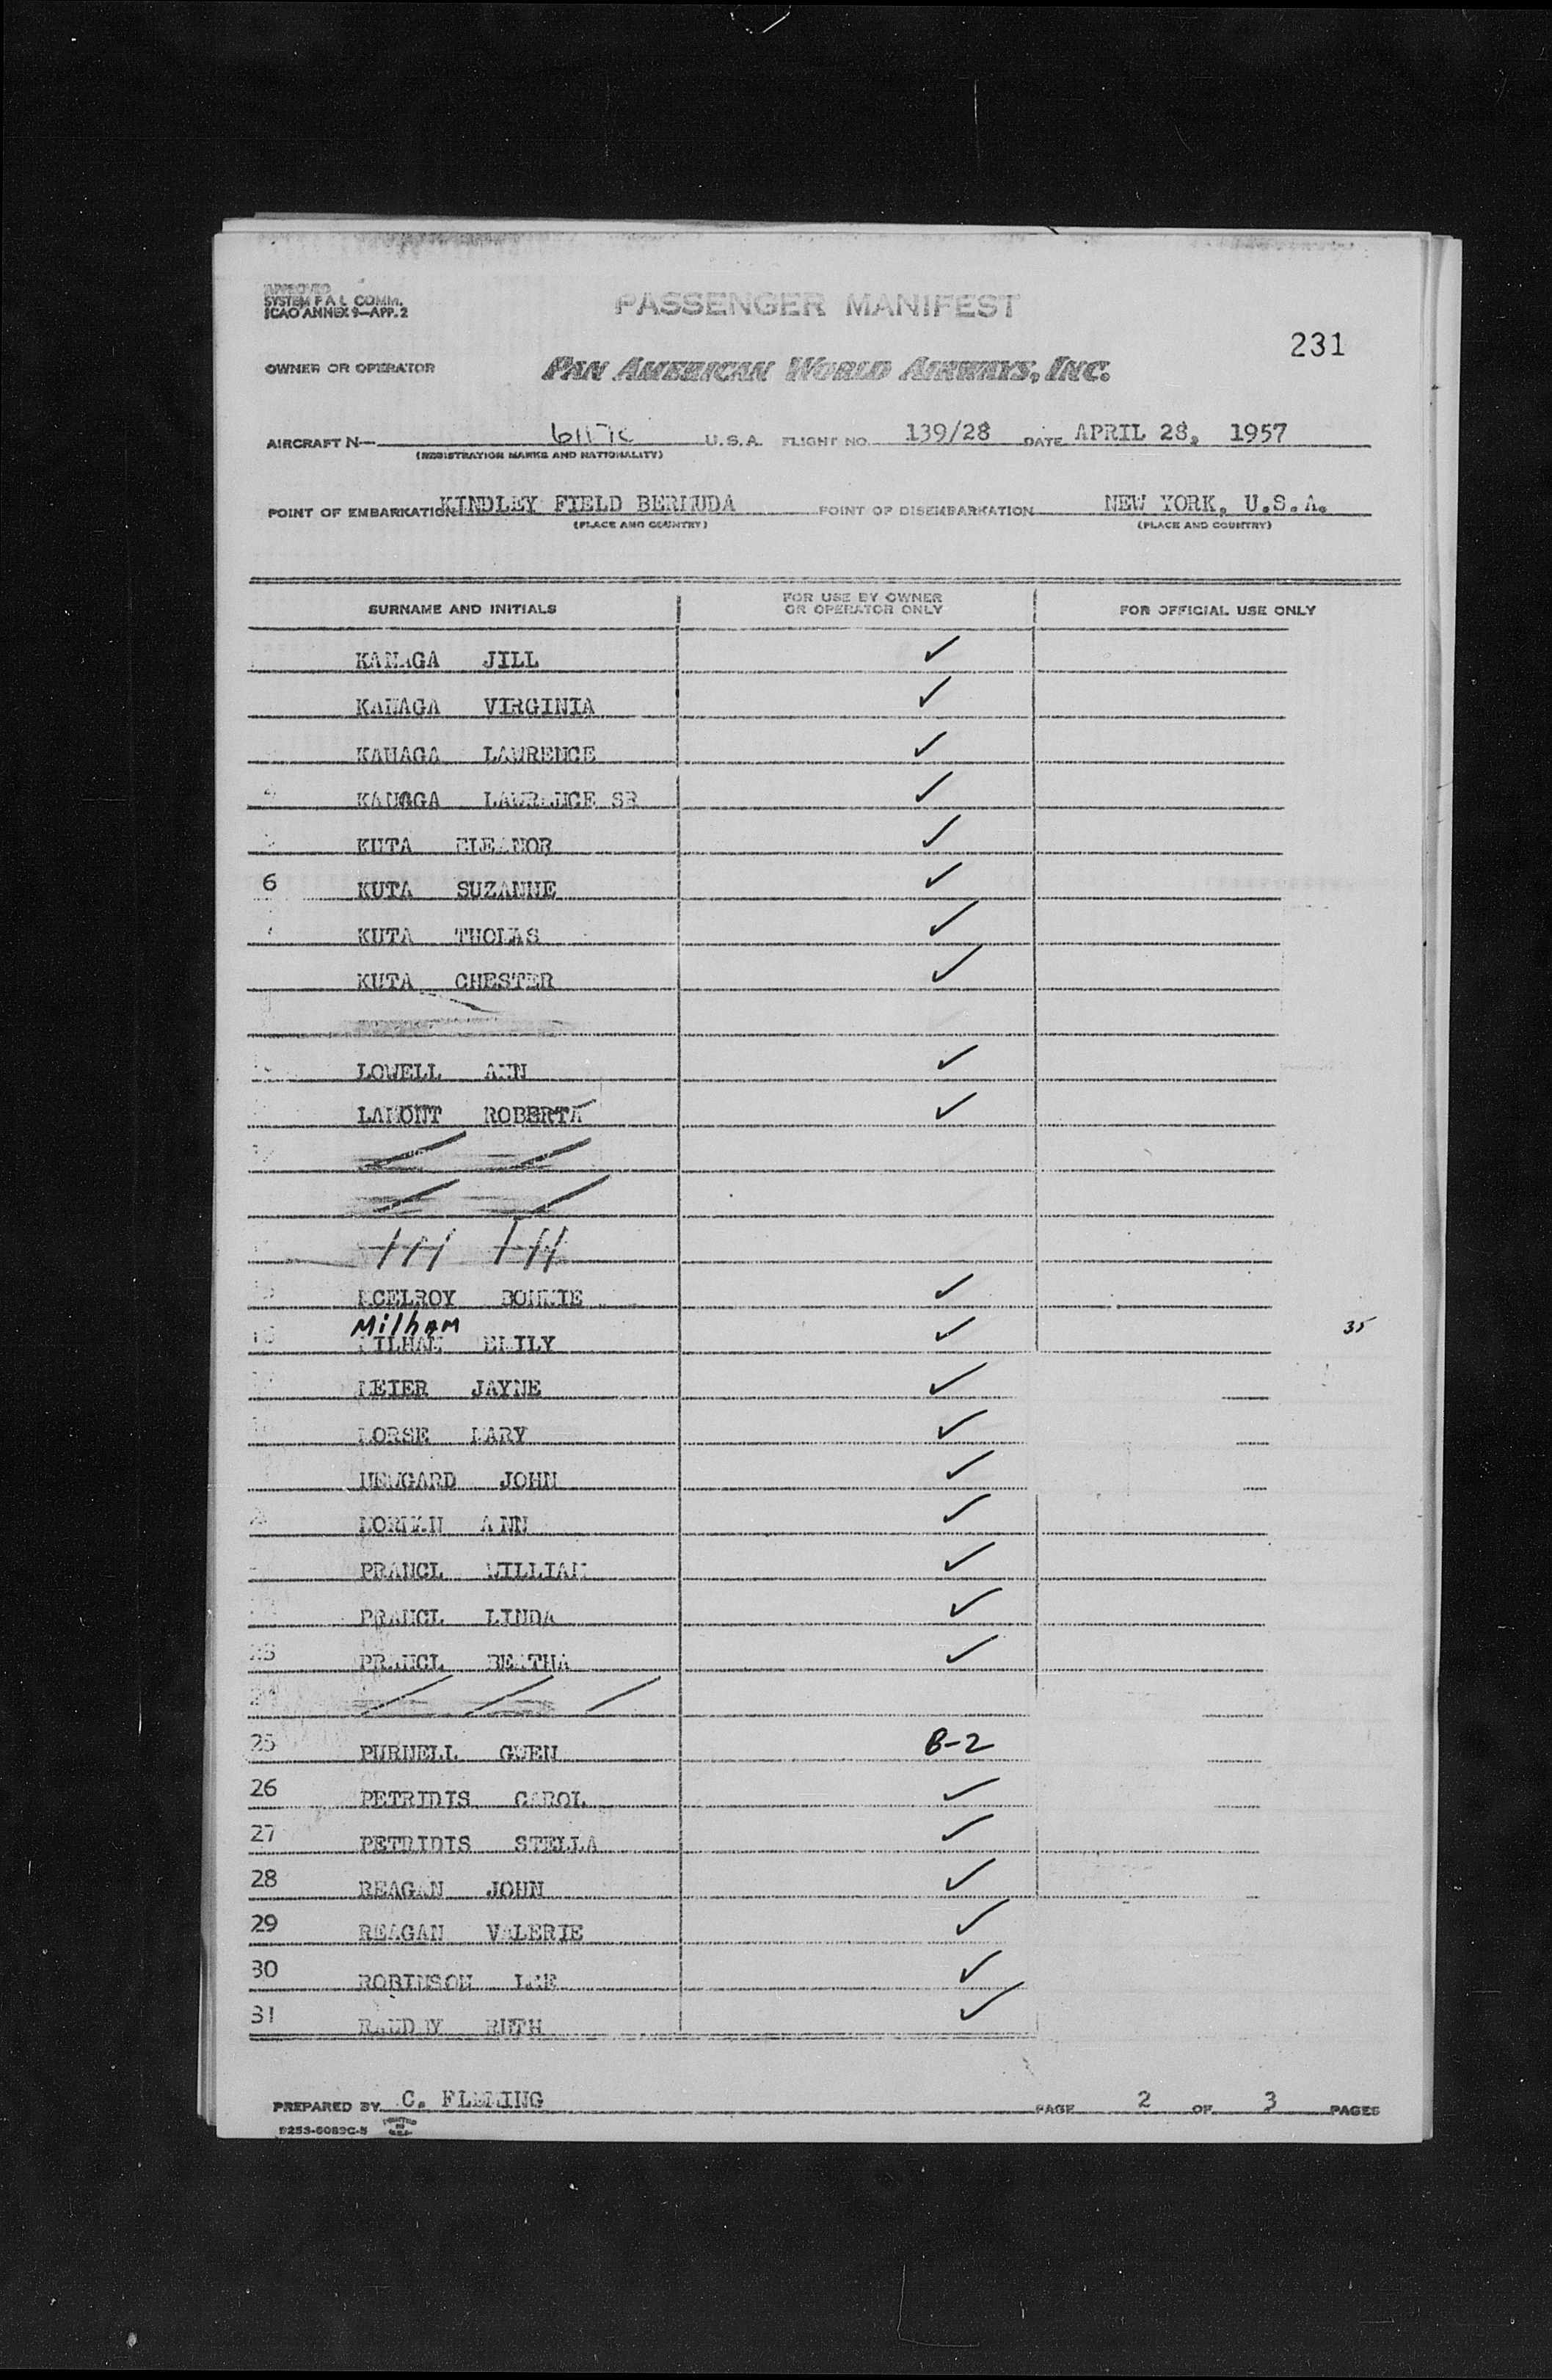 APPROVED
SYSTEM F A L COMM.
ICAO ANNEX 9—APP. 2
PASSENGER MANIFEST
231
OWNER OR OPERATOR PAN AMERICAN WORLD AIRWAYS, INC.
AIRCRAFT N— U.S.A. FLIGHT NO. 139/28 DATE APRIL 28, 1957
(REGISTRATION MARKS AND NATIONALITY)
POINT OF EMBARKATION KINDLEY FIELD BERMUDA POINT OF DISEMBARKATION NEW YORK, U.S.A.
(PLACE AND COUNTRY) (PLACE AND COUNTRY)
SURNAME AND INITIALS FOR USE BY OWNER OR OPERATOR ONLY FOR OFFICIAL USE ONLY
KANAGA JILL ✓
KANAGA VIRGINIA ✓
KANAGA LAWRENCE ✓
KANAGA LAWRENCE SR ✓
KUTA ELEANOR ✓
6 KUTA SUZANNE ✓
7 KUTA THOMAS ✓
KUTA CHESTER ✓
LOWELL ANN ✓
LAMONT ROBERTA ✓
MCELROY BONNIE ✓
Milham
16 MILHAM EMILY ✓ 35
MEIER JAYNE ✓
MORSE MARY ✓
NEWGARD JOHN ✓
NORMAN ANN ✓
PRANCL WILLIAM ✓
PRANCL LINDA ✓
23 PRANCL BERTHA ✓
24
25 PURNELL GWEN B-2
26 PETRIDIS CAROL ✓
27 PETRIDIS STELLA ✓
28 REAGAN JOHN ✓
29 REAGAN VALERIE ✓
30 ROBINSON LEE ✓
31 RUTH ✓
PREPARED BY C. FLEMING PAGE 2 OF 3 PAGES